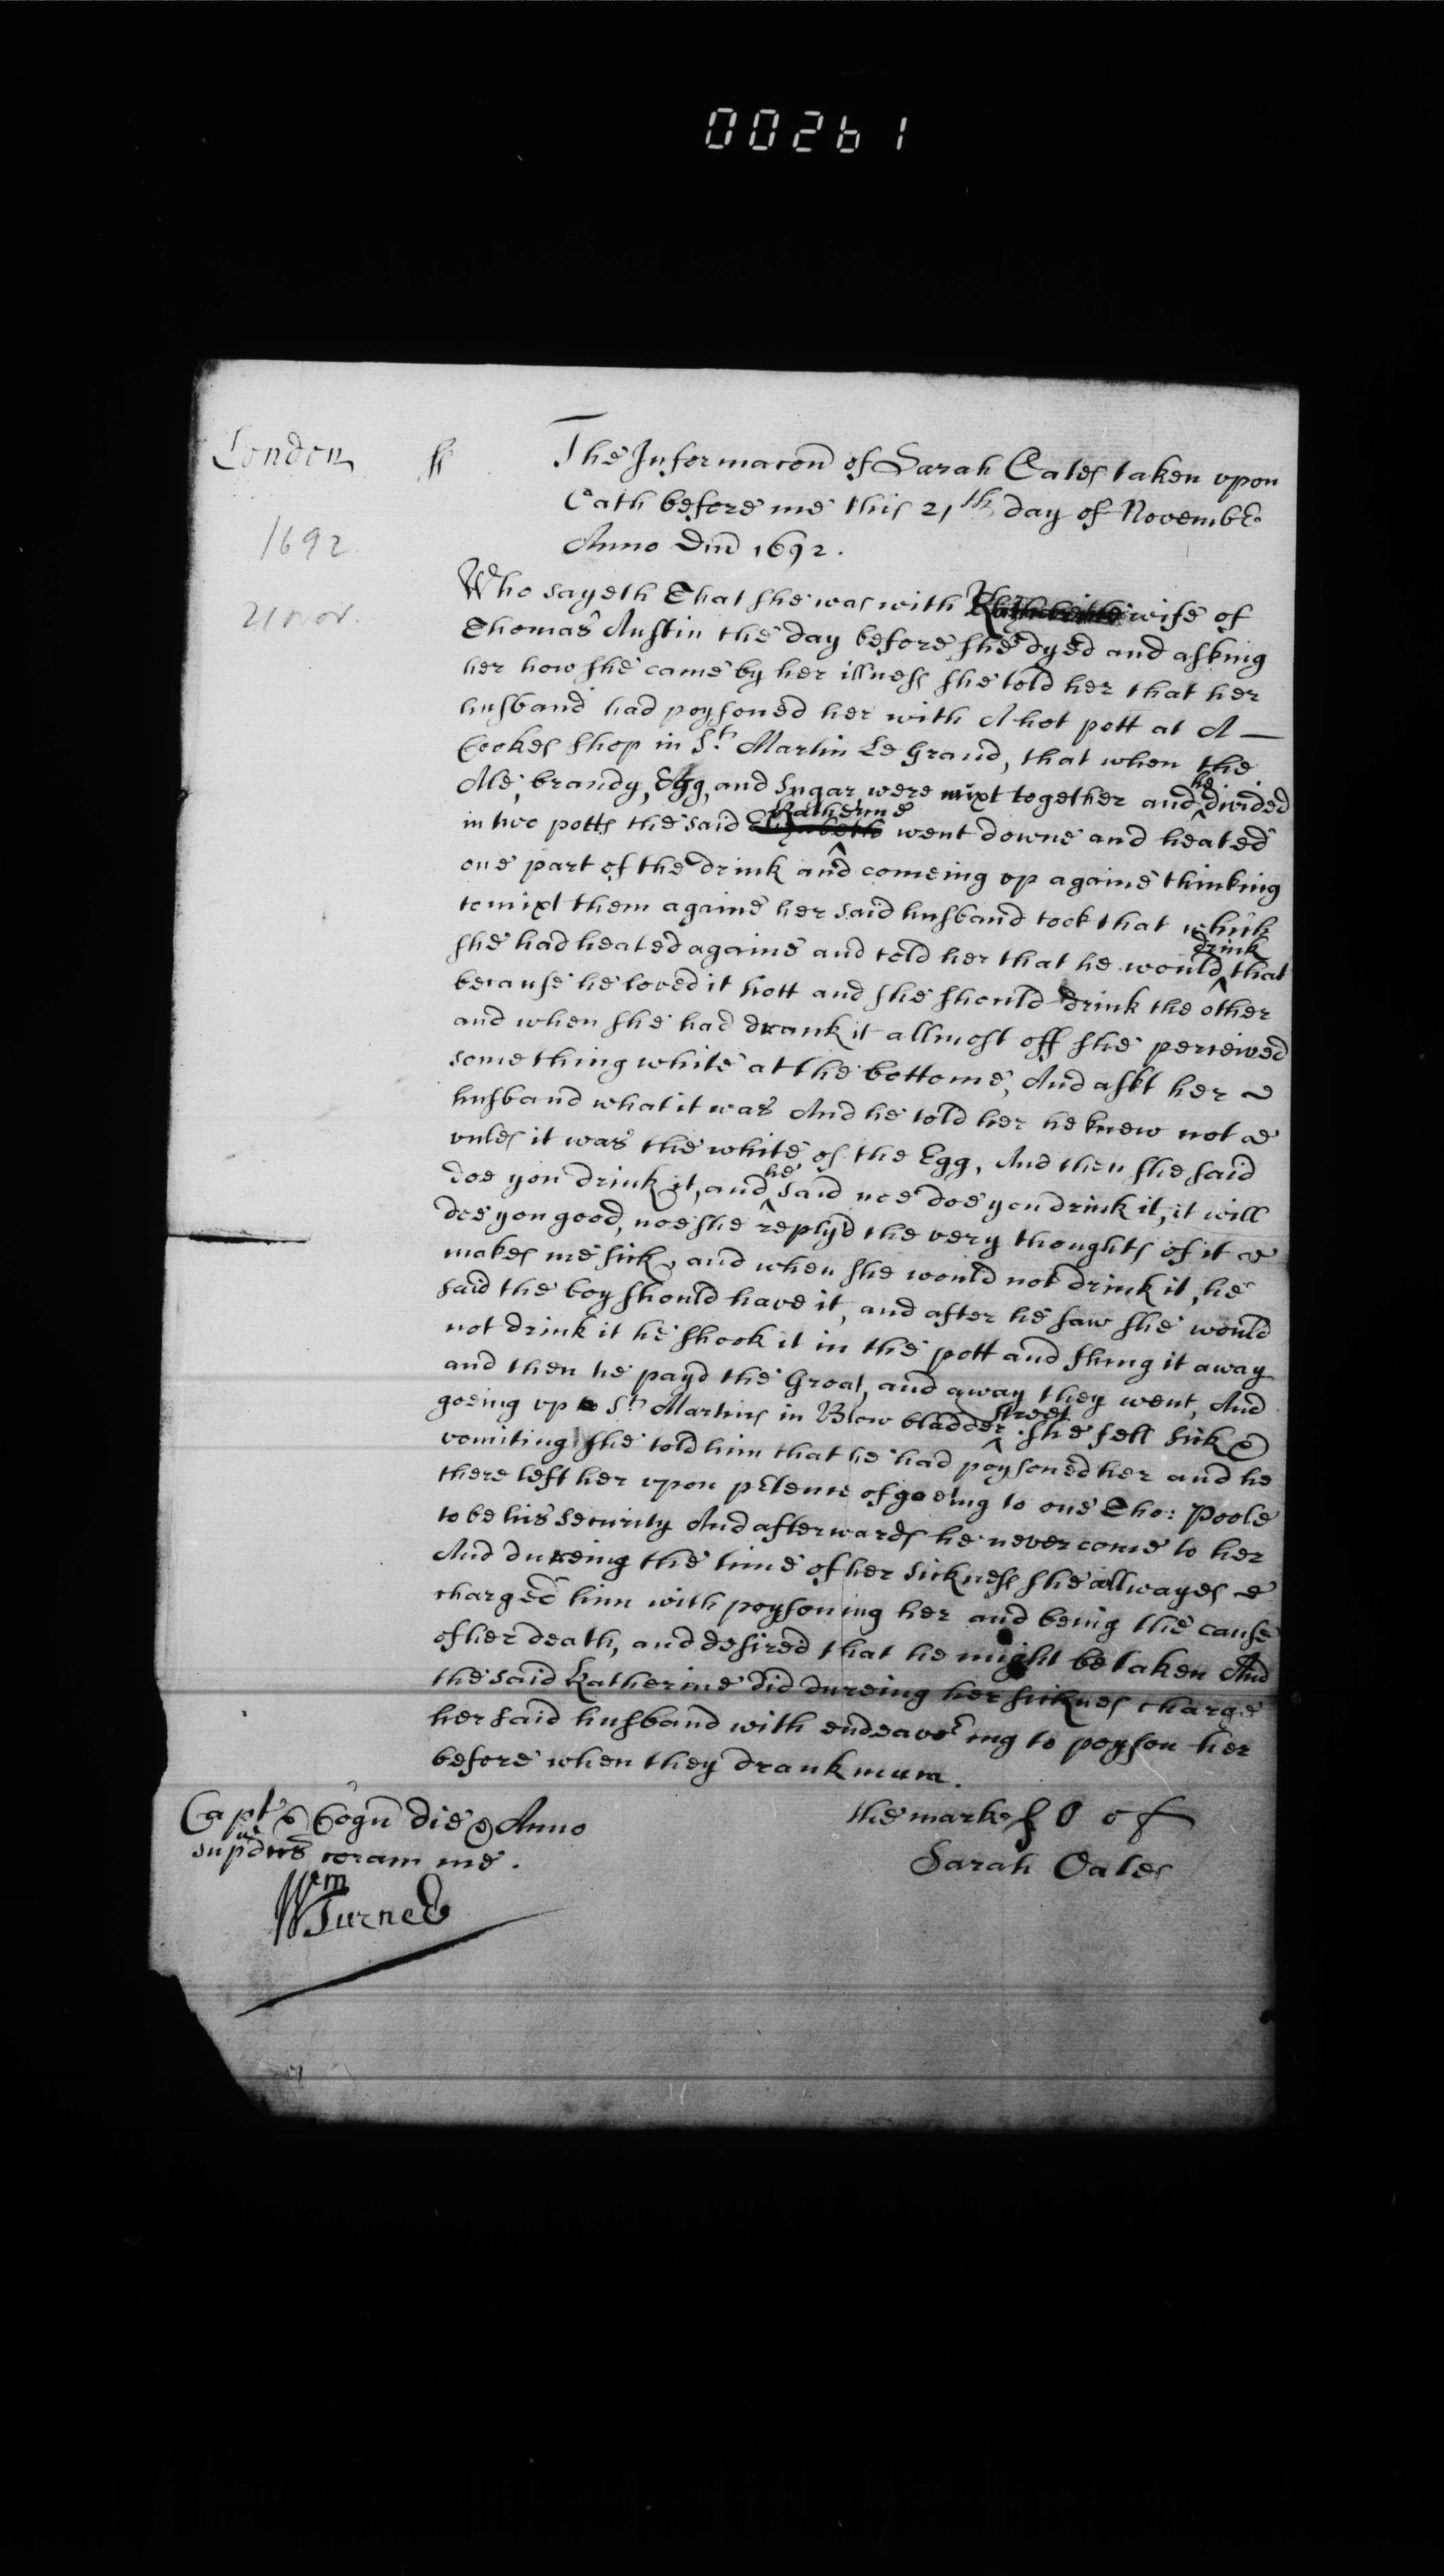 00261
London ss The Informacon of Sarah Oates taken upon
1692. Oath before me this 21th day of Novembr
21 Nov. Anno Dm 1692.
Who sayeth That she was with Katherine wife of
Thomas Austin the day before she dyed and asking
her how she came by her illness she told her that her
husband had poysoned her with A hot pott at A —
Cookes shop in St Martin Le Grand, that when the
Ale, brandy, Egg, and Sugar were mixt together and he divided
in two potts the said Elizabeth Katherine went downe and heated
one part of the drink and comeing up againe thinking
to mixt them againe her said husband took that which
she had heated againe and told her that he would drink that
because he loved it hott and she should drink the other
and when she had drank it allmost off she perceived
something white at the bottome, And askt her
husband what it was And he told her he knew not
unles it was the white of the Egg, And then she said
doe you drink it, and he said noe doe you drink it, it will
doe you good, noe she replyd the very thoughts of it
makes me sick, and when she would not drink it, he
said the boy should have it, and after he saw she would
not drink it he shook it in the pott and flung it away
and then he payd the Groat, and away they went, And
goeing up St Martins in Blow bladder street she fell sick &
vomiting she told him that he had poysoned her and he
there left her upon pretence of goeing to one Tho: Poole
to be his security And afterwards he never come to her
And dureing the time of her sickness she allwayes
charged him with poysoning her and being the cause
of her death, and desired that he might be taken And
the said Katherine did dureing her sicknes charge
her said husband with endeavoring to poyson her
before when they drank mum.
Capt & Cogn die & Anno the mark of
supdcis coram me. Sarah Oates
Wm Turner